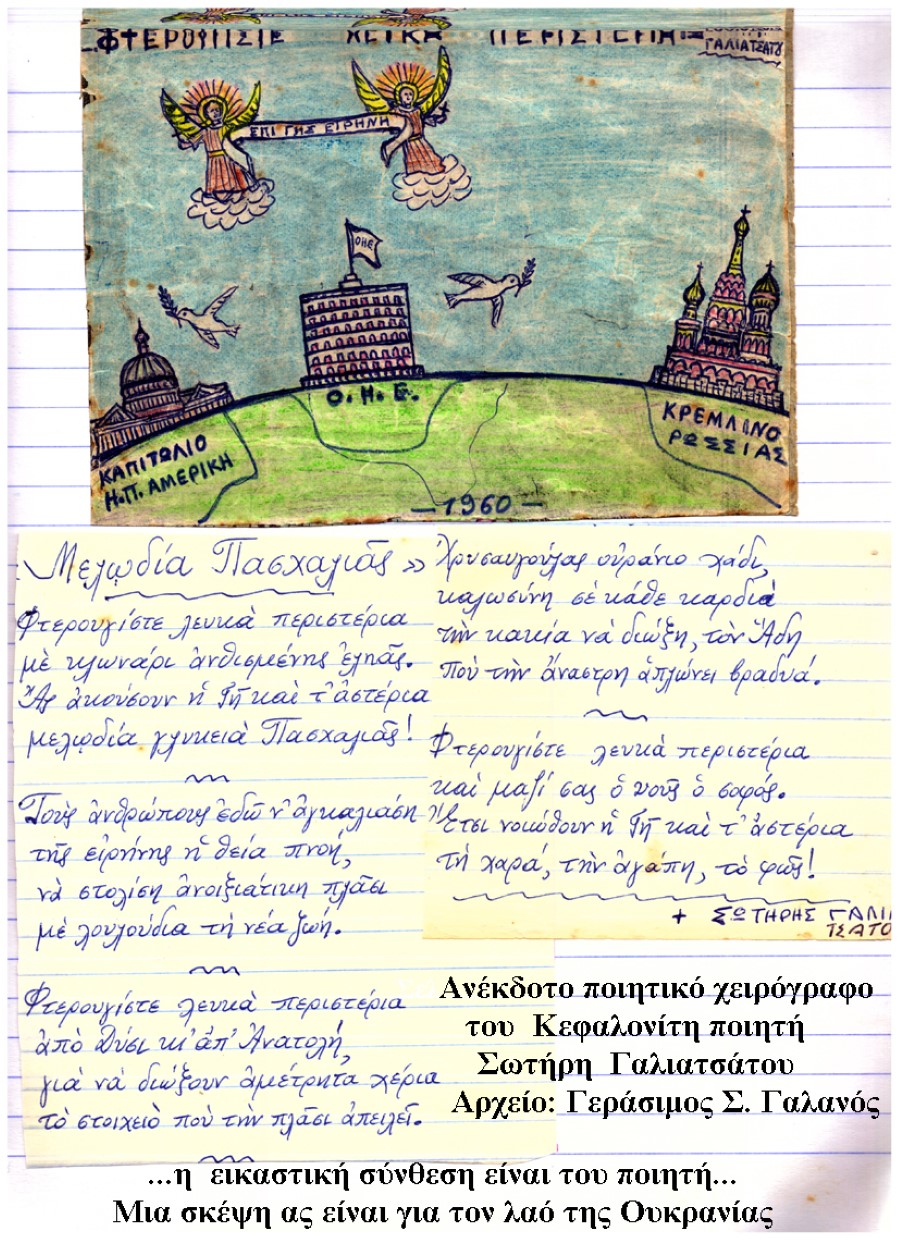 ΦΤΕΡΟΥΓΙΣΤΕ ΛΕΥΚΑ ΠΕΡΙΣΤΕΡΙΑ
ΓΑΛΙΑΤΣΑΤΟΥ
ΕΠΙ ΓΗΣ ΕΙΡΗΝΗ
ΟΗΕ
Ο. Η. Ε.
ΚΑΠΙΤΩΛΙΟ
Η.Π. ΑΜΕΡΙΚΗ
ΚΡΕΜΛΙΝΟ
ΡΩΣΣΙΑΣ
—1960—
Μελωδία Πασχαλιᾶς»
Φτερουγίστε λευκὰ περιστέρια
μὲ κλωνάρι ἀνθισμένης ἐληᾶς.
Ἂς ἀκούσουν ἡ Γῆ καὶ τ' ἀστέρια
μελωδία γλυκειὰ Πασχαλιᾶς!
Τοὺς ἀνθρώπους ἐδῶ ν' ἀγκαλιάση
τῆς εἰρήνης ἡ θεία πνοή,
νὰ στολίση ἀνοιξιάτικη πλάσι
μὲ λουλούδια τὴ νέα ζωή.
Φτερουγίστε λευκὰ περιστέρια
ἀπὸ Δύσι κι' ἀπ' Ἀνατολή,
γιὰ νὰ διώξουν ἀμέτρητα χέρια
τὸ στοιχειὸ ποὺ τὴν πλάσι ἀπειλεῖ.
Χρυσαυγούλας οὐράνιο χάδι,
καλωσύνη σὲ κάθε καρδιὰ
τὴν κακία νὰ διώξη, τὸν Ἅδη
ποὺ τὴν ἄναστρη ἁπλώνει βραδυά.
Φτερουγίστε λευκὰ περιστέρια
καὶ μαζί σας ὁ νοῦς ὁ σοφός.
Ἔτσι νοιώθουν ἡ Γῆ καὶ τ' ἀστέρια
τὴ χαρά, τὴν ἀγάπη, τὸ φῶς!
+ ΣΩΤΗΡΗΣ ΓΑΛΙΑ
ΤΣΑΤΟ
Ανέκδοτο ποιητικό χειρόγραφο
του Κεφαλονίτη ποιητή
Σωτήρη Γαλιατσάτου
Αρχείο: Γεράσιμος Σ. Γαλανός
...η εικαστική σύνθεση είναι του ποιητή...
Μια σκέψη ας είναι για τον λαό της Ουκρανίας